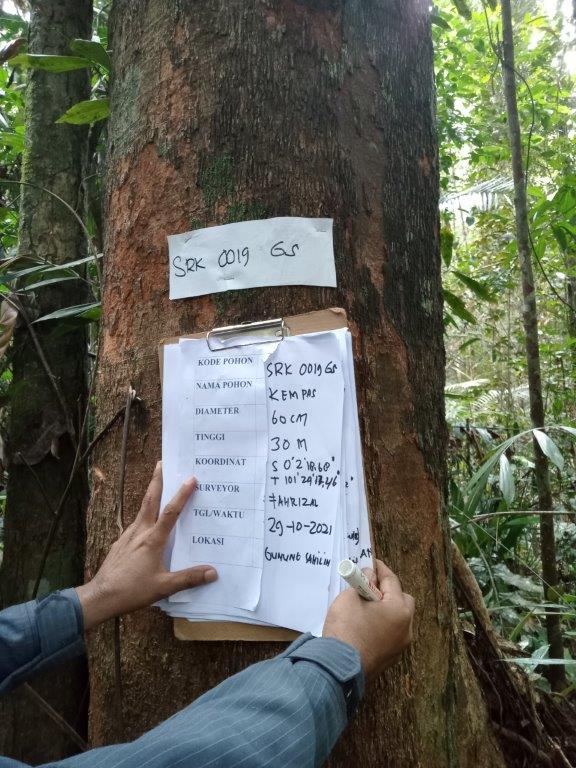 SRK 0019 GS
KODE POHON SRK 0019 GS
NAMA POHON KEMPAS
DIAMETER 60 CM
TINGGI 30 M
KOORDINAT S 0°2'18.68"
T 101°29'13.46"
SURVEYOR FAHRIZAL
TGL/WAKTU 29-10-2021
LOKASI GUNUNG SAHILIN